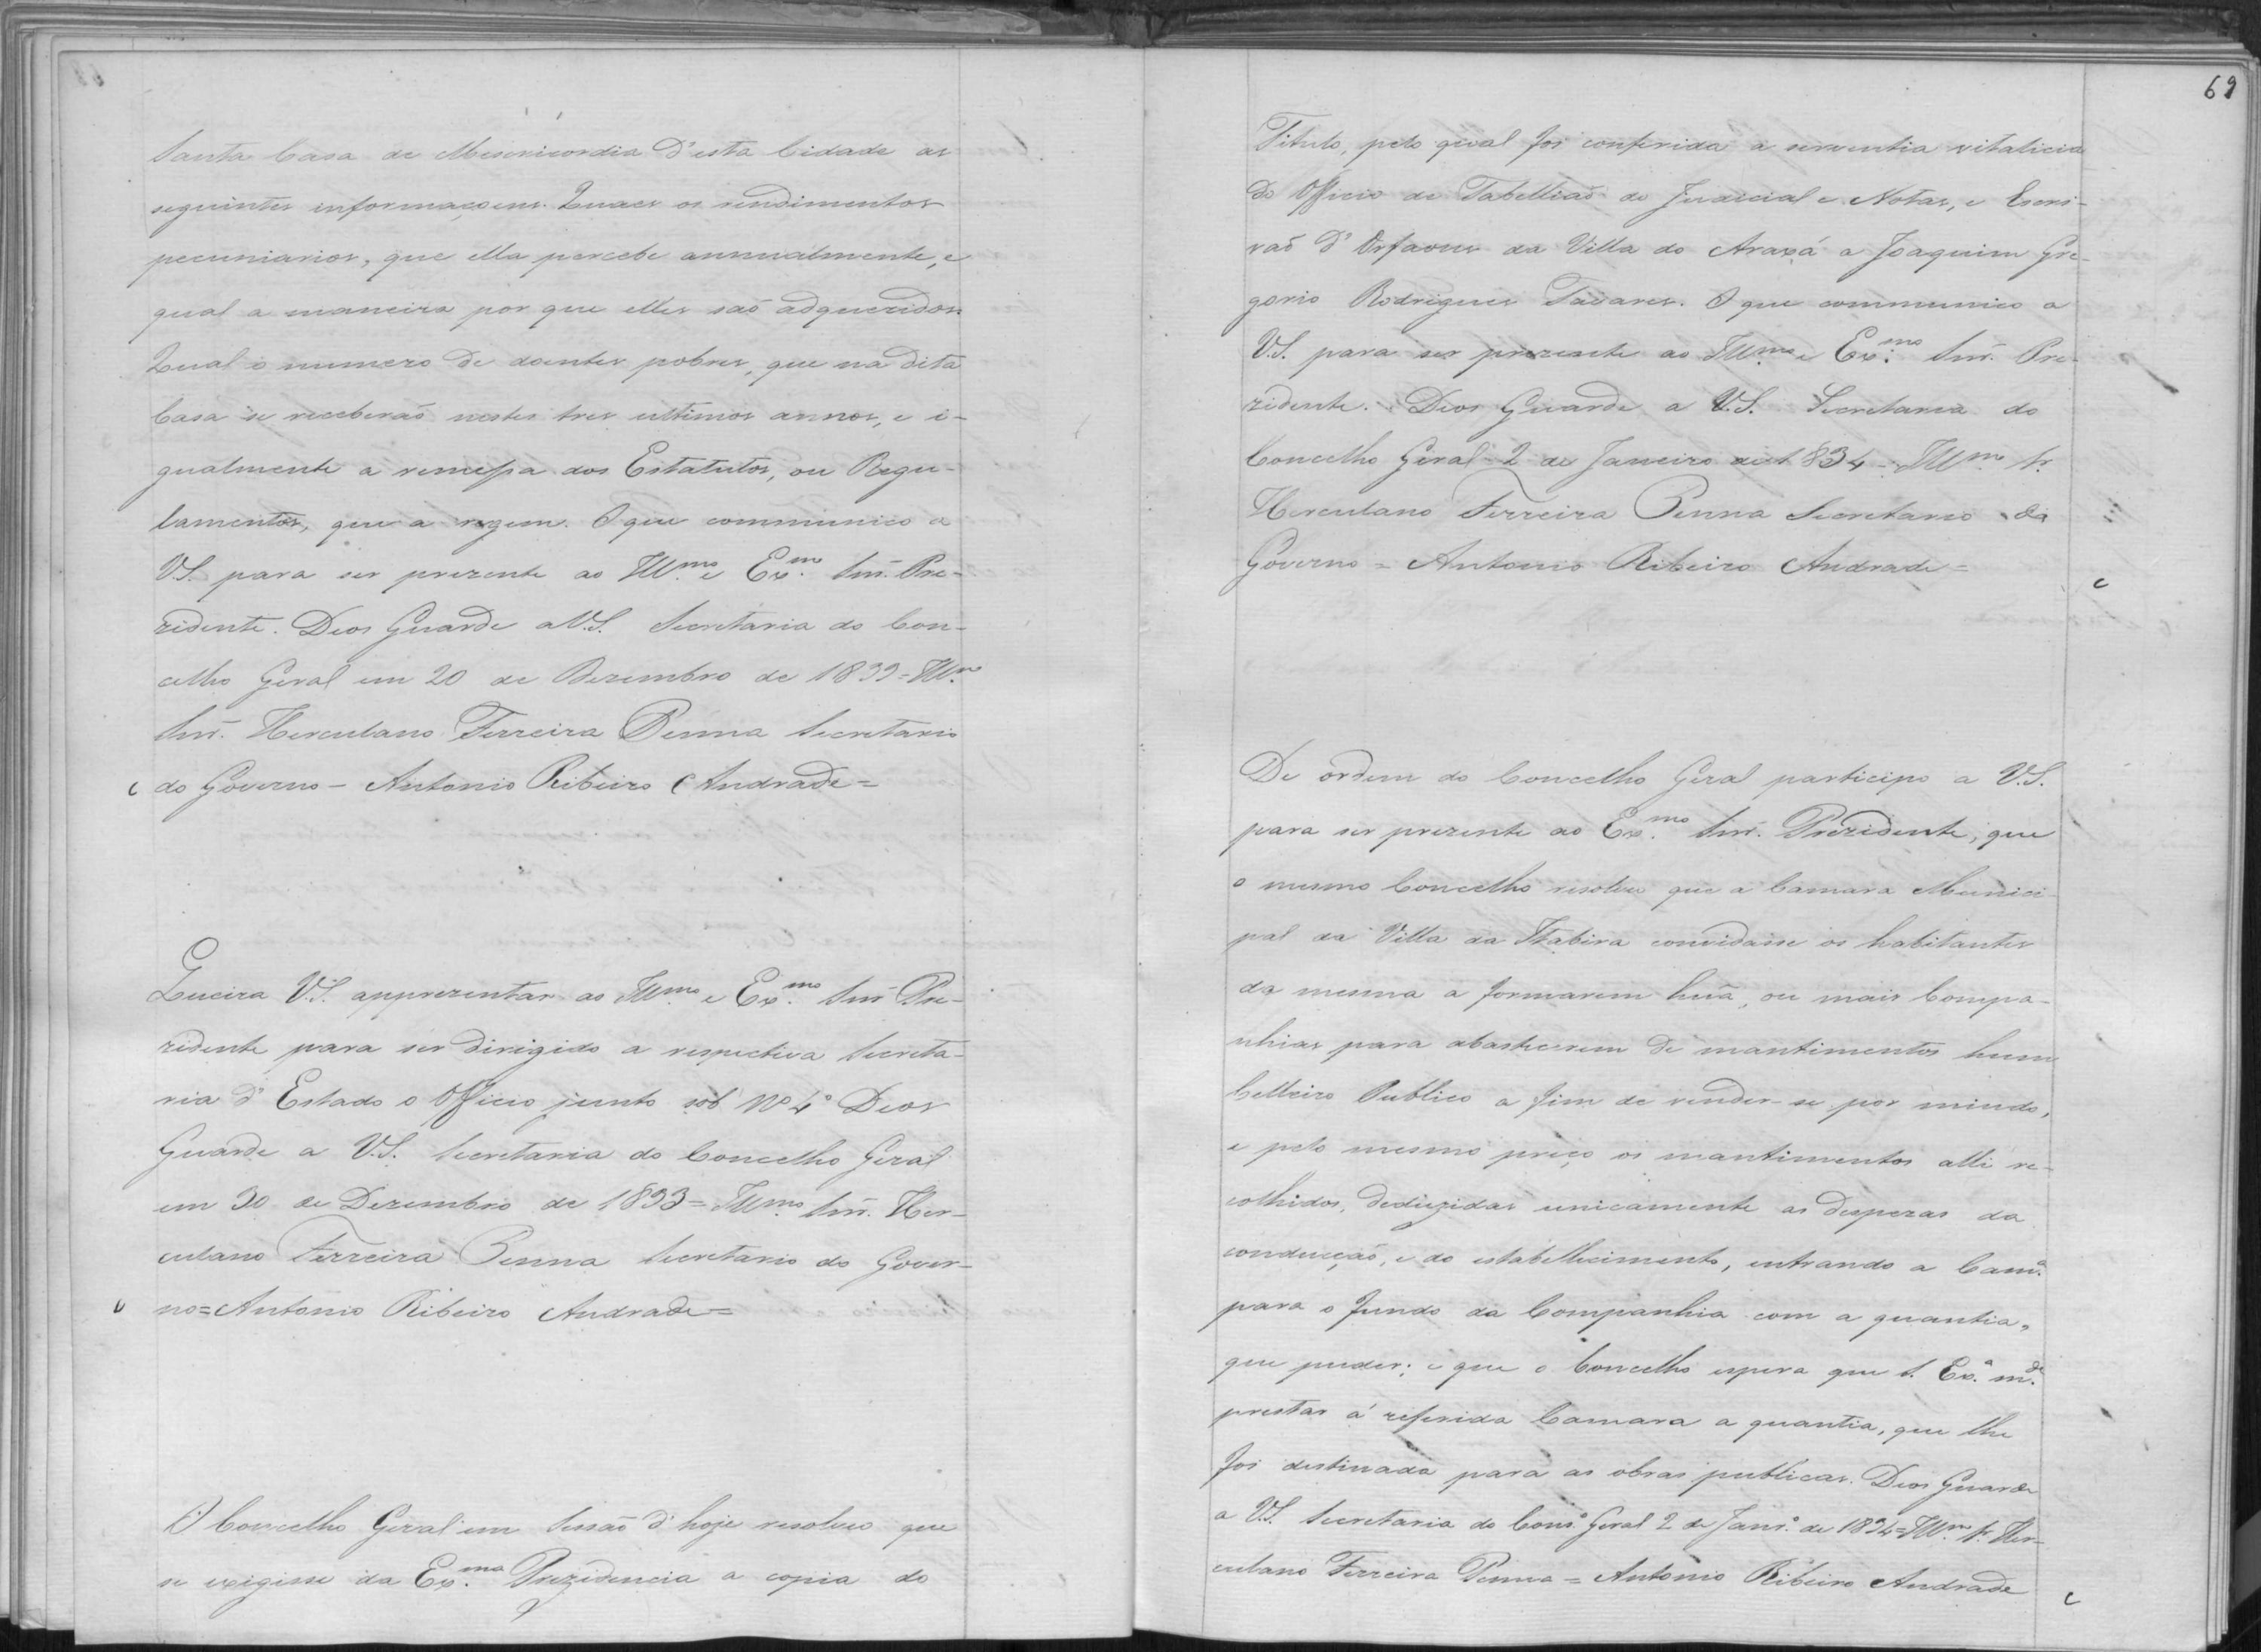 Santa Casa de Mesericordia d'esta Cidade as
seguintes informaçoens. Quaes os rendimentos
pecuniarios, que ella percebe annualmente, e
qual a maneira por que elles saõ adqueridos.
Qual o numero de doentes pobres, que na dita
Casa se receberaõ nestes tres ultimos annos, e i-
gualmente a remessa dos Estatutos, ou Regu-
lamentos, que a regem. O que communico a
V.S. para ser prezente ao Illmo. e Exmo. Snr. Pre-
zidente. Deos Guarde a V.S. Secretaria do Con-
celho Geral em 20 de Dezembro de 1833 = Illmo.
Snr. Herculano Ferreira Penna Secretario
do Governo - Antonio Ribeiro Andrade =
Queira V.S. apprezentar ao Illmo. e Exmo. Snr. Pre-
zidente para ser dirigido a respectiva Secreta-
ria d'Estado o Officio junto sob No 4º Deos
Guarde a V.S. Secretaria do Concelho Geral
em 30 de Dezembro de 1833 = Illmo. Snr. Her-
culano Ferreira Penna Secretario do Gover-
no = Antonio Ribeiro Andrade =
O Concelho Geral em Sessão d'hoje resolveo que
se exigisse da Exma. Prezidencia a copia do
69
Titulo, pelo qual foi conferida a serventia vitalicia
do Officio de Tabelliaõ do Judicial e Notas, e Escri-
vaõ d'Orfaons da Villa do Araxá a Joaquim Gre-
gorio Rodrigues Tavares. O que communico a
V.S. para ser prezente ao Illmo. e Exmo. Snr. Pre-
zidente. Deos Guarde a V.S. Secretaria do
Concelho Geral 2 de Janeiro de 1834 = Illmo. Sr.
Herculano Ferreira Penna Secretario do
Governo = Antonio Ribeiro Andrade =
De ordem do Concelho Geral participo a V.S.
para ser prezente ao Exmo. Snr. Prezidente, que
o mesmo Concelho resolveo que a Camara Munici-
pal da Villa da Itabira convidasse os habitantes
da mesma a formarem huã, ou mais Compa-
nhias para abastecerem de mantimentos hum
Celleiro Publico a fim de vender-se por miudo,
e pelo mesmo preço os mantimentos alli re-
colhidos, deduzidas unicamente as despezas da
conducçaõ, e do estabellecimento, entrando a Camª.
para o fundo da Companhia com a quantia,
que puder; e que o Concelho espera que S. Exª. mde.
prestar á referida Camara a quantia, que lhe
foi destinada para as obras publicas. Deos Guarde
a V.S. Secretaria do Consº. Geral 2 de Janrº. de 1834 = Illmo. Sr. Her-
culano Ferreira Penna = Antonio Ribeiro Andrade